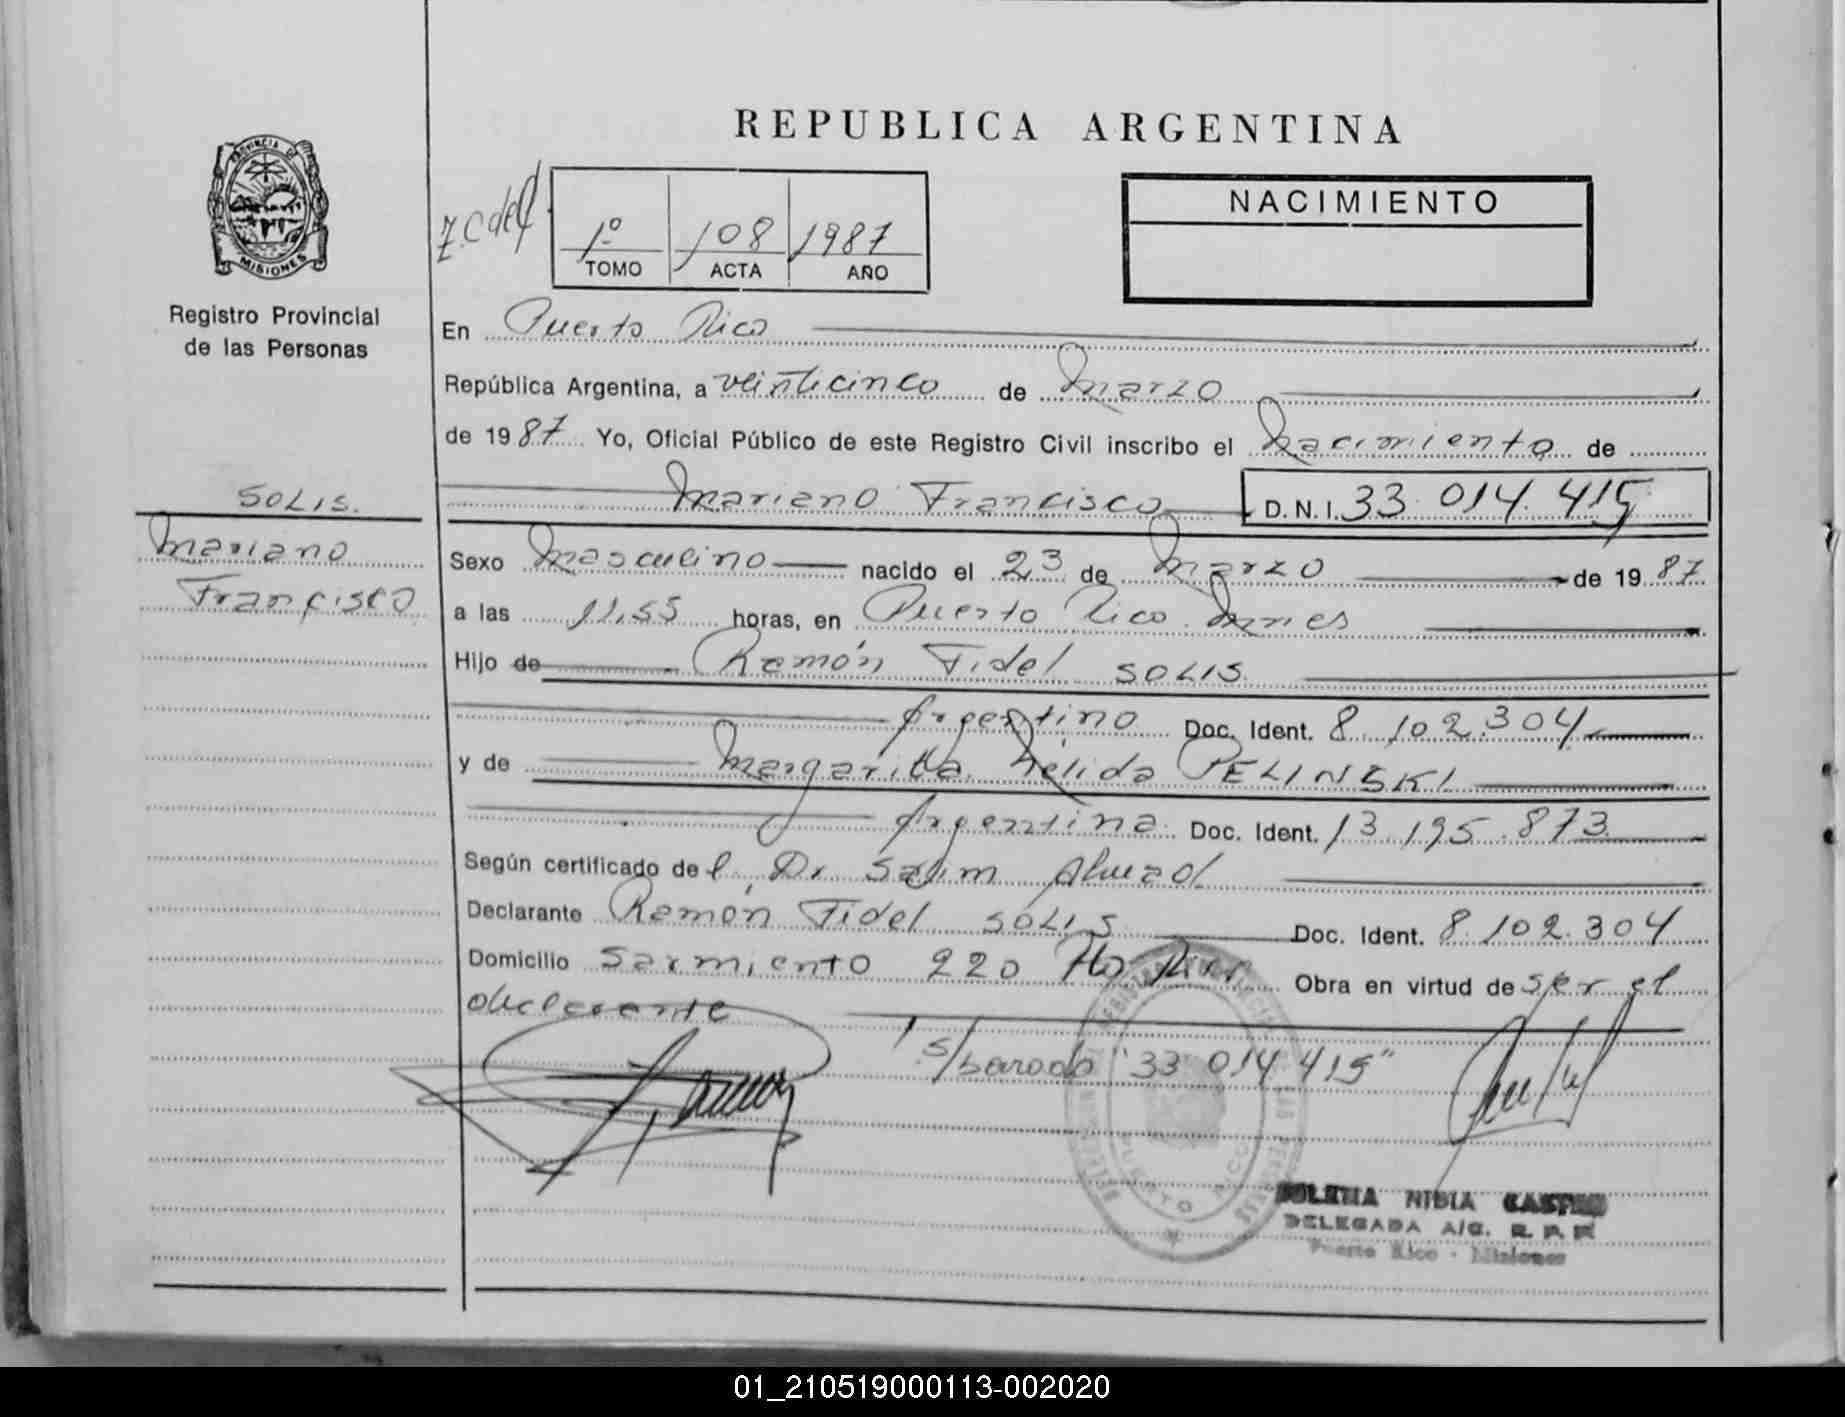 REPUBLICA ARGENTINA
PROVINCIA DE
MISIONES
Registro Provincial
de las Personas
1º 108 1987
TOMO ACTA AÑO
NACIMIENTO
En Puerto Rico
República Argentina, a veinticinco de Marzo
de 1987 Yo, Oficial Público de este Registro Civil inscribo el Nacimiento de
Mariano Francisco D.N.I. 33.014.415
SOLIS.
Mariano
Francisco
Sexo Masculino nacido el 23 de Marzo de 1987
a las 11,55 horas, en Puerto Rico Mnes
Hijo de Ramón Fidel SOLIS
Argentino Doc. Ident. 8.102.304
y de Margarita Nélida PELINSKI
Argentina Doc. Ident. 13.195.873
Según certificado del Dr Salim
Declarante Ramón Fidel SOLIS Doc. Ident. 8.102.304
Domicilio Sarmiento 220 Pto Rico Obra en virtud de ser el
declarante
S/borado "33 014 415"
NIDIA CASTRO
DELEGADA A/C. R. P. P.
Puerto Rico - Misiones
01_210519000113-002020